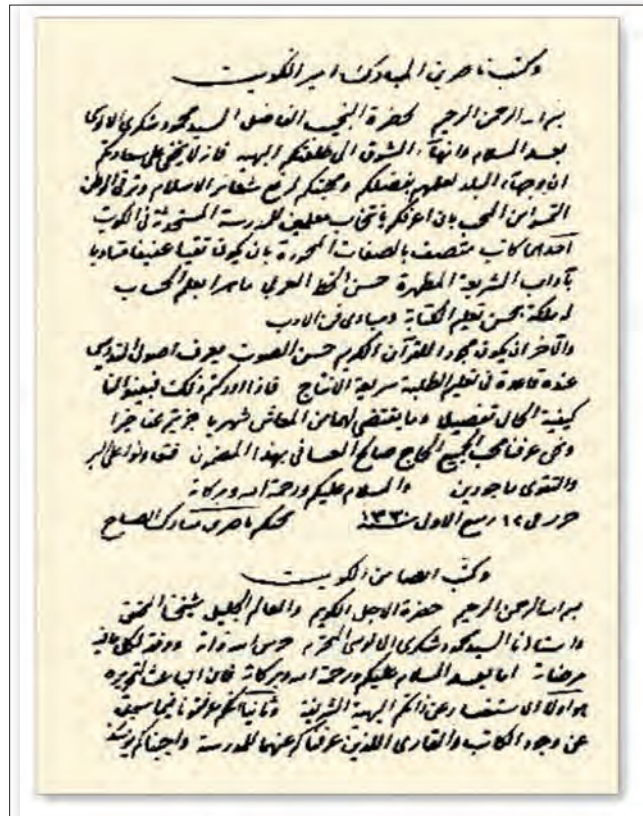 وكتب ناصر بن المبارك امير الكويت
بسم الله الرحمن الرحيم لحضرة النجيب الفاضل السيد محمود شكري الالوسي
بعد السلام وانهاء الشوق الى طلعتكم البهية فانه لا يخفى على سعادتكم
ان وجهاء البلد لعلمهم بفضلكم ومحبتكم لرفع شعائر الاسلام وترقي الوطن
التمسوا من المحب بان اعرفكم بانتخاب معلمين للمدرسة المستحدثة في الكويت
احدهما كاتب متصف بالصفات المحررة بان يكون تقيا عفيفا متأدبا
بآداب الشريعة المطهرة حسن الخط العربي ماهرا بعلم الحساب
له ملكة بحسن تعليم الكتابة ومبادئ فن الادب
والآخر ان يكون مجودا للقرآن الكريم حسن الصوت يعرف اصول التدريس
عنده قاعدة في تعليم الطلبة سريعة الانتاج فاذا اردكم ذلك فبينوا لنا
كيفية الحال تفصيلا وما يقتضي لهما من المعاش شهريا جزيتم عنا خيرا
ونحن عرفنا محب الجميع الحاج صالح العسافي بهذا المضمون فتعاونوا على البر
والتقوى مأجورين والسلام عليكم ورحمة الله وبركاته
حرر في ١٢ ربيع الاول سنة ١٣٣٠ محبكم ناصر بن مبارك الصباح
وكتب ايضا من الكويت
بسم الله الرحمن الرحيم حضرة الاجل الكريم والعالم الجليل شيخنا
واستاذنا السيد محمود شكري الالوسي المحترم حرس الله ذاته ووفقه لكل ما فيه
مرضاته اما بعد السلام عليكم ورحمة الله وبركاته فان الباعث لتحريره
هو اولا الاستفسار عن ذاتكم البهية الشريفة وثانيا انكم عرفتونا فيما سبق
عن وجود الكاتب والقارئ اللذين عرفناكم عنهما للمدرسة واجبناكم